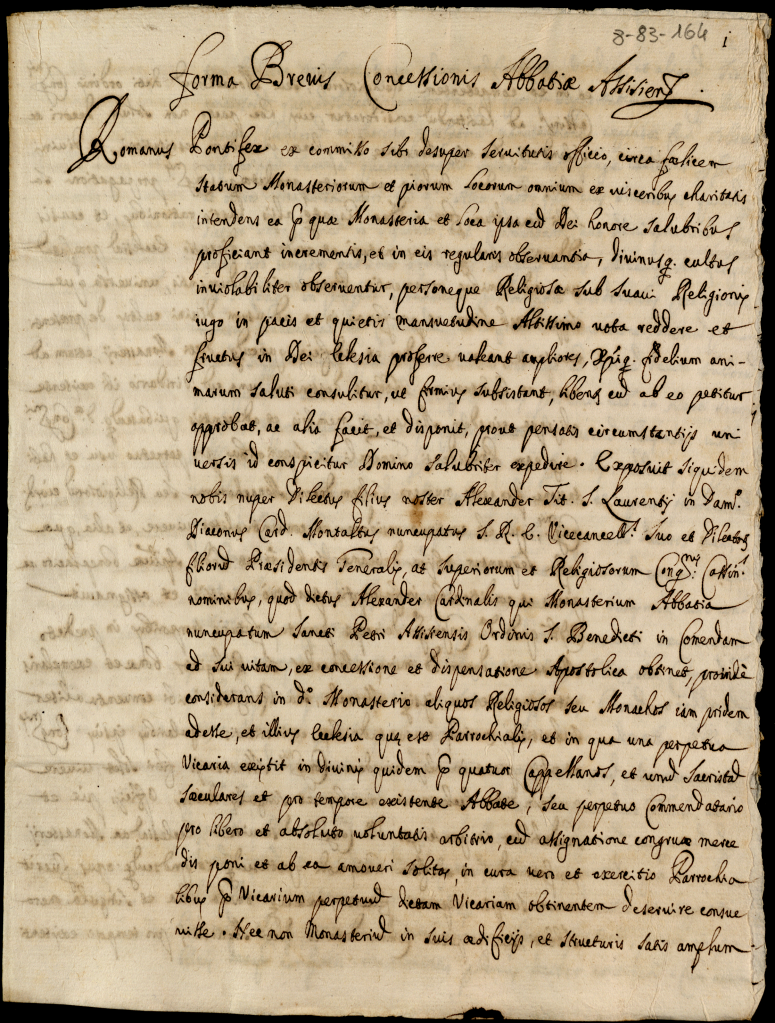 8-83-164
1
Forma Brevis Concessionis Abbatiæ Assisien
Romanus Pontifex ex commisso sibi desuper servitutis officio, circa fælicem
statum Monasteriorum et piorum locorum omnium ex visceribus charitatis
intendens ea p quæ Monasteria et loca ipsa cũ Dei honore salubribus
proficiant incrementis, et in eis regularis observantia, divinusq. cultus
inviolabiliter observentur, personeque Religiosæ sub suavi Religionis
iugo in pacis et quietis mansuetudine Altissimo vota reddere et
fructus in Dei Ecclesia proferre valeant ampliores, Xpiq. fidelium ani-
marum saluti consulitur, ut firmius subsistant, libens cũ ab eo petitur
approbat, ac alia facit, et disponit, prout pensatis circumstantijs uni
versis id conspicitur Domino salubriter expedire. Exposuit siquidem
nobis nuper Dilectus filius noster Alexander Tit. S. Laurentij in Dam.º
Diaconus Card. Montaltus nuncupatus S. R. E. Vicecancell.s suo et Dilectorũ
filiorũ Præsidentis Generalis, ac Superiorum et Religiosorum Cong.nis Cassin.s
nominibus, quod dictus Alexander Cardinalis qui Monasterium Abbatia
nuncupatum Sancti Petri Assisiensis Ordinis S. Benedicti in Comendam
ad sui vitam, ex concessione et dispensatione Apostolica obtinet, proindè
considerans in d.º Monasterio aliquos Religiosos seu Monachos iam pridem
adesse, et illius Ecclesia quæ est Parrochialis, et in qua una perpetua
Vicaria existit in divinis quidem p quatuor Cappellanos, et unũ Sacristã
sæculares et pro tempore existente Abbate, seu perpetuo Commendatario
pro libero et absoluto voluntatis arbitrio, cũ assignatione congruæ merce
dis poni et ab ea amoveri solitos, in cura vero et exercitio Parrochia
libus p Vicarium perpetuũ dictam Vicariam obtinentem deservire consue
visse. Nec non Monasteriũ in suis ædificijs, et structuris satis amplum